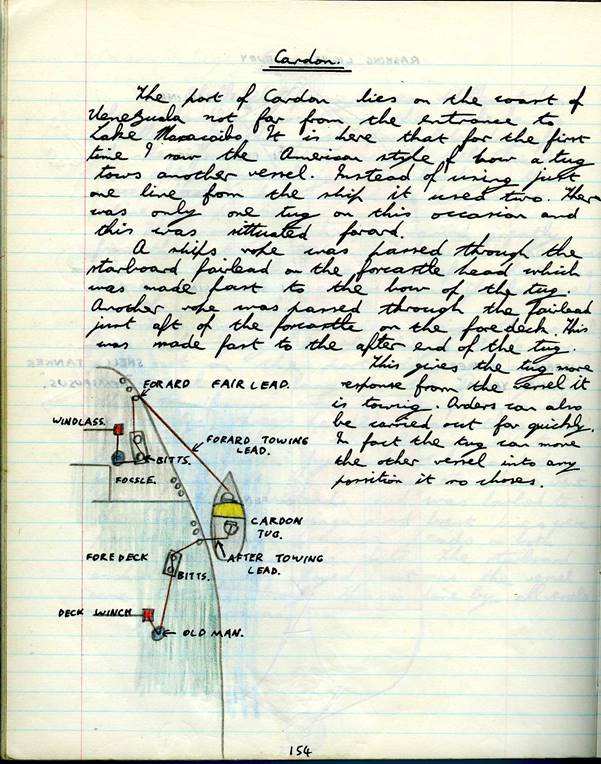 Cardon.
The port of Cardon lies on the coast of
Venezuala not far from the entrance to
Lake Maracaibo. It is here that for the first
time I saw the American style of how a tug
tows another vessel. Instead of using just
one line from the ship it used two. There
was only one tug on this occasion and
this was situated forard.
A ships rope was passed through the
starboard fairlead on the forcastle head which
was made fast to the bow of the tug.
Another rope was passed through the fairlead
just aft of the forcastle on the foredeck. This
was made fast to the after end of the tug.
This gives the tug more
response from the vessel it
is towing. Orders can also
be carried out far quickly.
In fact the tug can move
the other vessel into any
possition it so choses.
FORARD FAIR LEAD.
WINDLASS.
FORARD TOWING
LEAD.
BITTS.
FOCSLE.
CARDON
TUG.
FOREDECK
BITTS.
AFTER TOWING
LEAD.
DECK WINCH
OLD MAN.
154